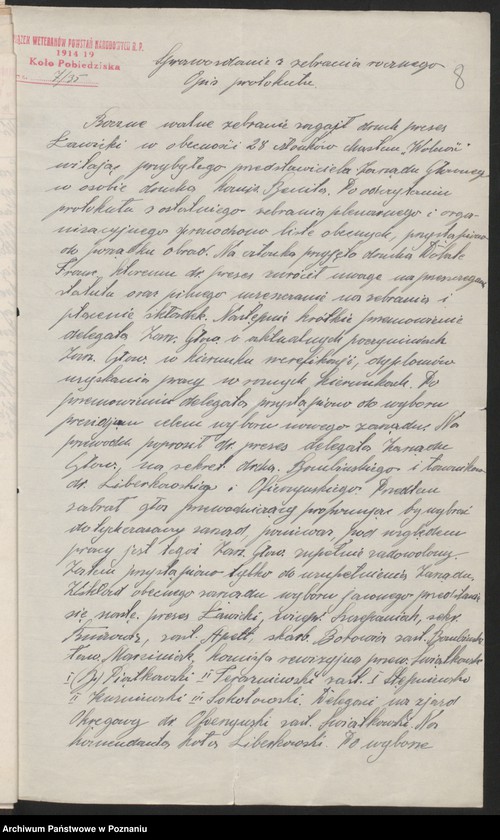 ZWIĄZEK WETERANÓW POWSTAŃ NARODOWYCH R.P.
1914 19
Koło Pobiedziska
7/35
8
Sprawozdanie z zebrania rocznego
Opis protokułu.
Roczne walne zebranie zagaił druh prezes
Ławicki w obecności 28 członków hasłem "Wolność"
witając przybyłego przedstawiciela Zarządu Głównego
w osobie druha Benita. Po odczytaniu
protokułu z ostatniego zebrania plenarnego i orga-
nizacyjnego sprawdzono listę obecnych, przystąpiono
do porządku obrad. Na członka przyjęto druha
Franc. któremu dr. prezes zwrócił uwagę na przestrzeganie
statutu oraz pilnego uczęszczania na zebrania i
płacenie składek. Następnie krótkie przemówienie
delegata Zarz. Głow. o aktualnych poczynaniach
Zarz. Głow. w kierunku weryfikacji, dyplomów
uzyskania pracy w różnych kierunkach. Po
przemówieniu delegata przystąpiono do wyboru
prezidjum celem wyboru nowego zarządu. Na
przewodn. poprosił dr. prezes delegata Zarządu
Głow., na sekret. druha Bomlińskiego i ławników
dr. Liberkowskiego i Ofierzyńskiego. Przedtem
zabrał głos przewodniczący proponując by wybrać
dotychczasowy zarząd, ponieważ pod względem
pracy jest tegoż Zarz. Głow. zupełnie zadowolony.
Zatem przystąpiono tylko do uzupełnienia Zarządu.
Skład obecnego zarządu wyboru jawnego przedstawia
się nastę. prezes Ławicki, wicepr. Szczepaniak, sekr.
zast. Apelt, skarb. zast.
Marciniak, komisja rewizyjna przew. Świątkowski
I Piątkowski II zast. I Stępniewski
II Kuśniewski III Sokołowski. Delegaci na zjazd
Okręgowy dr. Ofierzyński zast. Świątkowski. Na
komendanta koła Liberkowski. Po wyborze